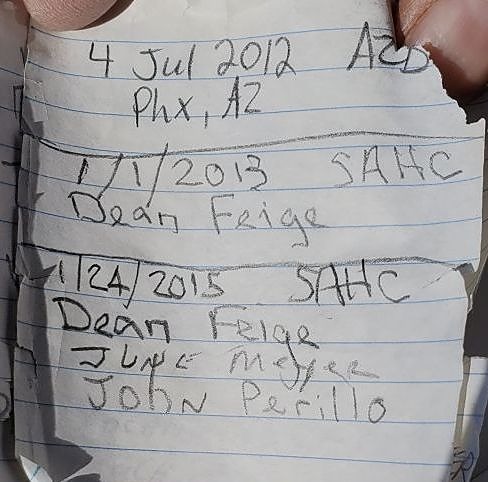 4 Jul 2012 AZD
Phx, AZ
1/1/2013 SAHC
Dean Feige
1/24/2015 SAHC
Dean Feige
June Meyer
John Perillo